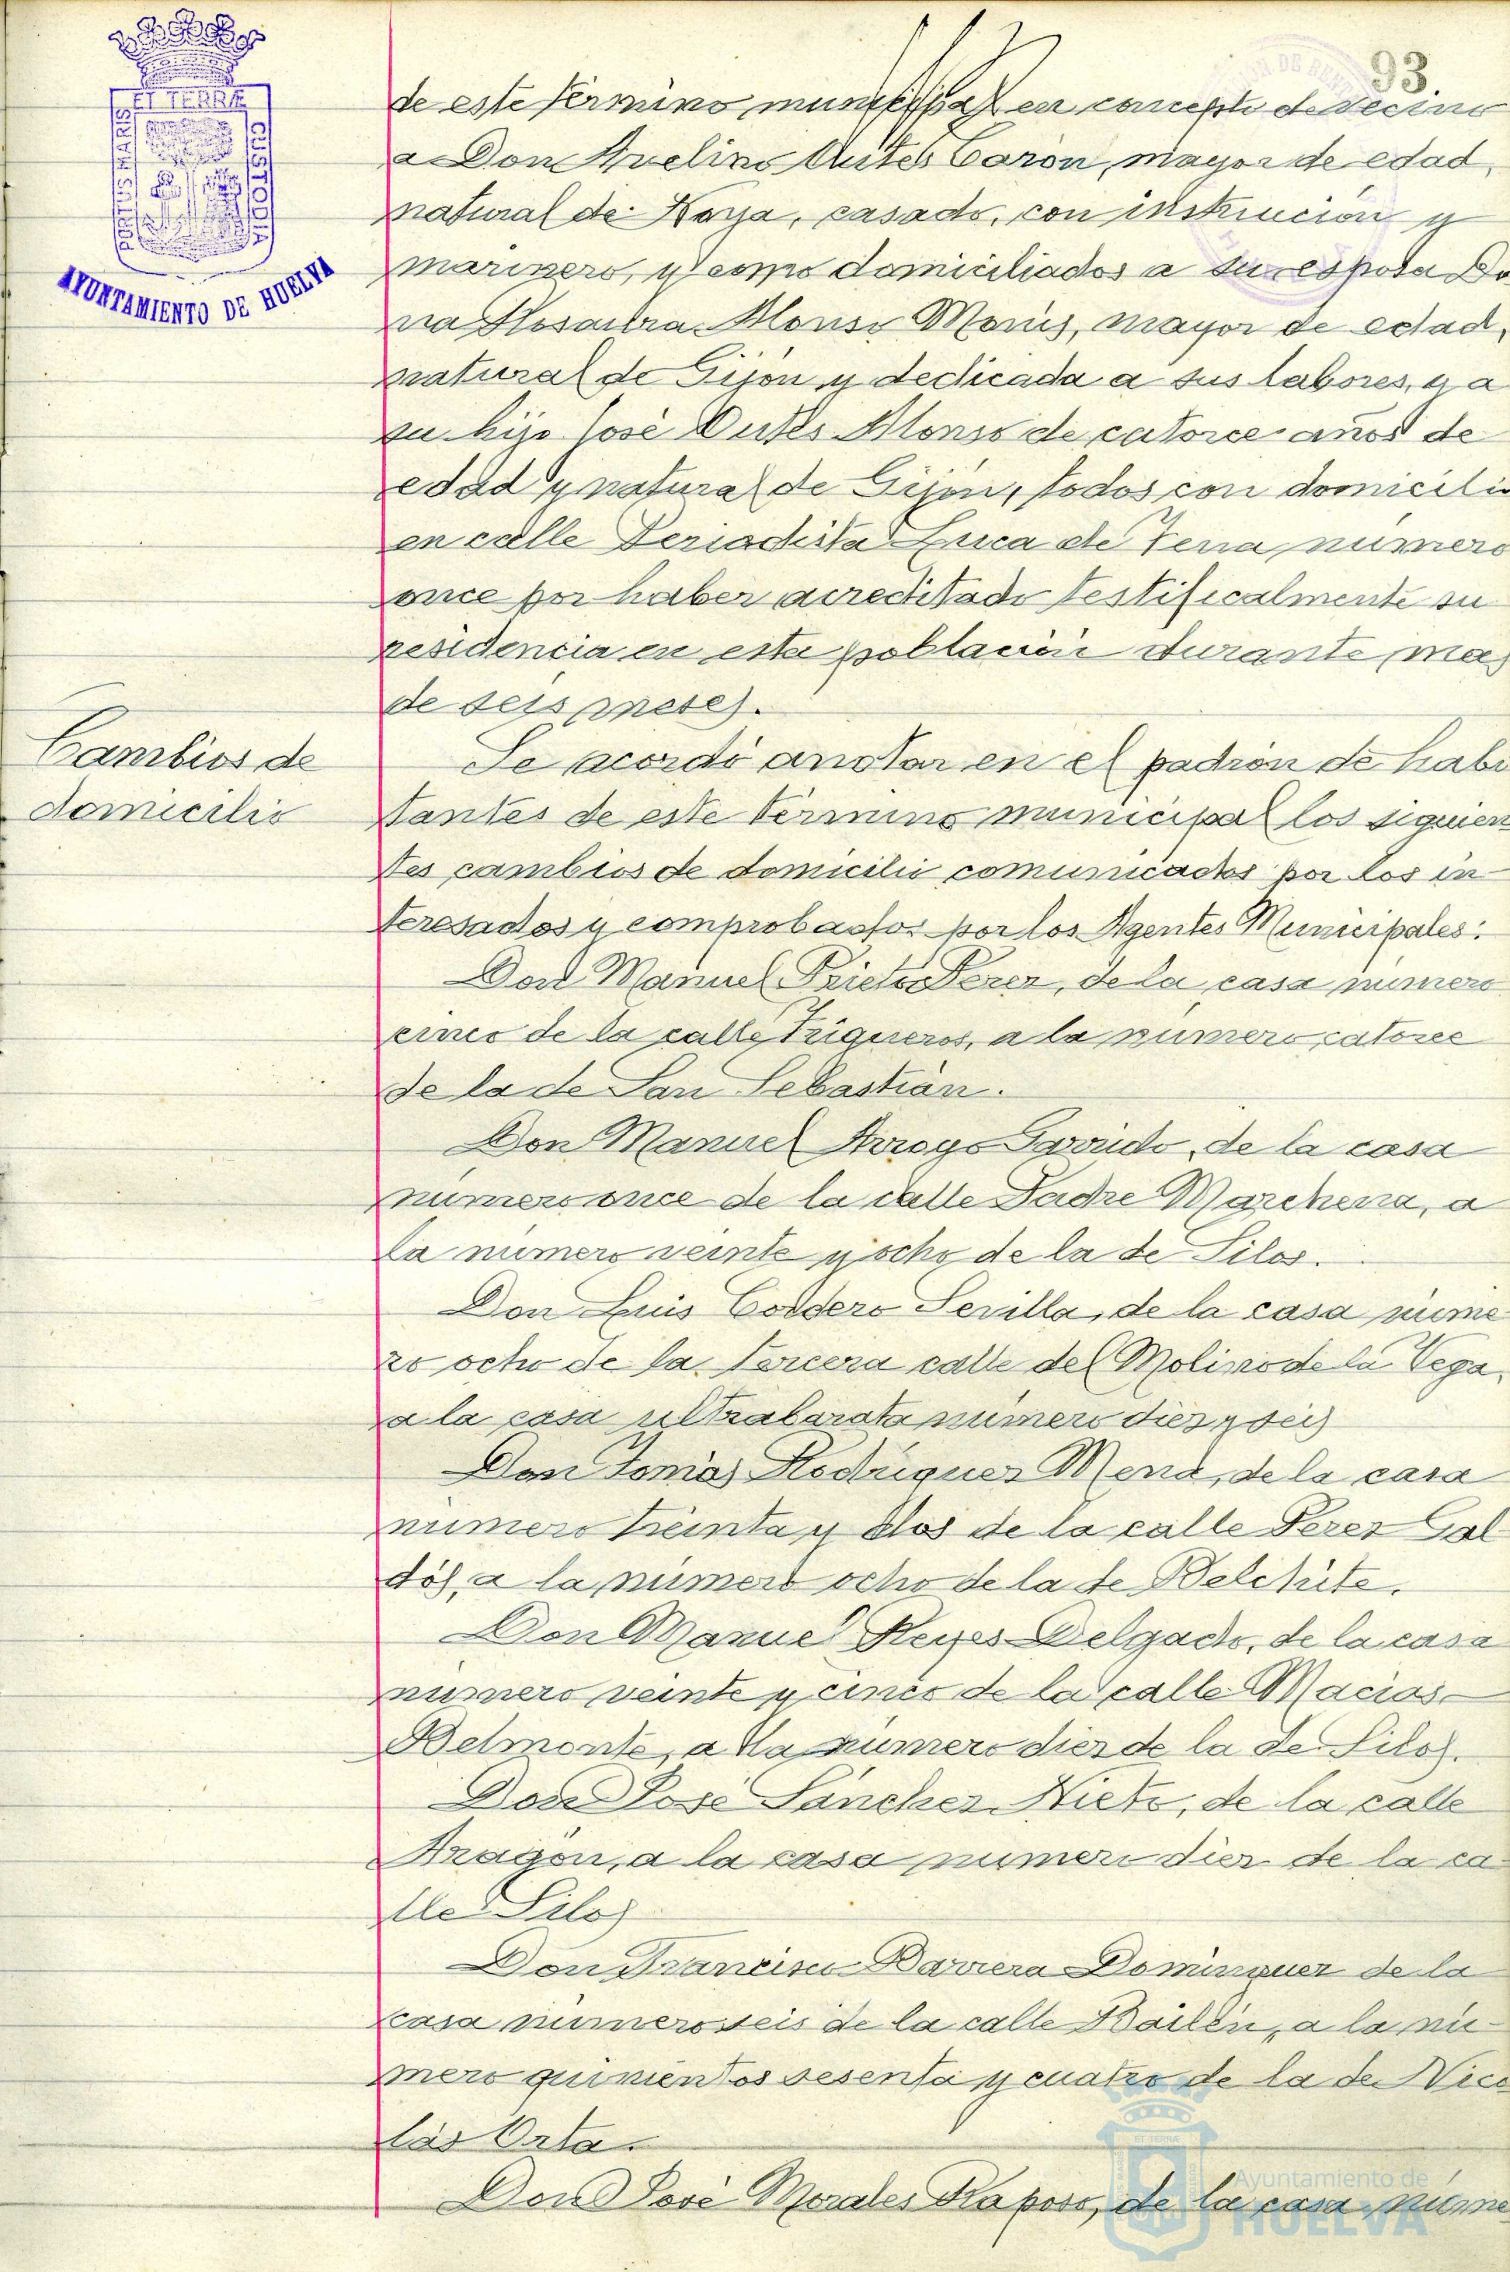 93
ET TERRÆ
PORTUS MARIS
CUSTODIA
AYUNTAMIENTO DE HUELVA
de este término municipal en concepto de vecino
a Don Avelino Outes Carón, mayor de edad,
natural de Noya, casado, con instrucción y
marinero, y como domiciliados a su esposa Do
ña Alonso mayor de edad,
natural de Gijón y dedicada a sus labores, y a
su hijo José Outes Alonso de catorce años de
edad y natural de Gijón, todos con domicilio
en calle Periodista Luca de Tena, número
once por haber acreditado testificalmente su
residencia en esta población durante mas
de seis meses.
Cambios de
domicilio
Se acordó anotar en el padrón de habi
tantes de este término municipal los siguien
tes cambios de domicilio comunicados por los in-
teresados y comprobados por los Agentes Municipales:
Don Manuel Prieto Perez, de la casa número
cinco de la calle Trigueros, a la número catorce
de la de San Sebastián.
Don Manuel Arroyo Garrido, de la casa
número once de la calle Padre Marchena, a
la número veinte y ocho de la de Silos.
Don Luis Cordero Sevilla, de la casa núme
ro ocho de la tercera calle del Molino de la Vega,
a la casa ultrabarata número diez y seis
Don Tomás Rodriguez Mena, de la casa
número treinta y dos de la calle Perez Gal
dós, a la número ocho de la de Belchite.
Don Manuel Reyes Delgado, de la casa
número veinte y cinco de la calle Macias
Belmonte, a la número diez de la de Silos.
Don José Sánchez Nieto, de la calle
Aragón, a la casa número diez de la ca
lle Silos
Don Francisco Barrera Dominguez de la
casa número seis de la calle Bailén, a la nú-
mero quinientos sesenta y cuatro de la de Nico
lás Orta.
Don José Morales Raposo, de la casa núme
Ayuntamiento de
HUELVA